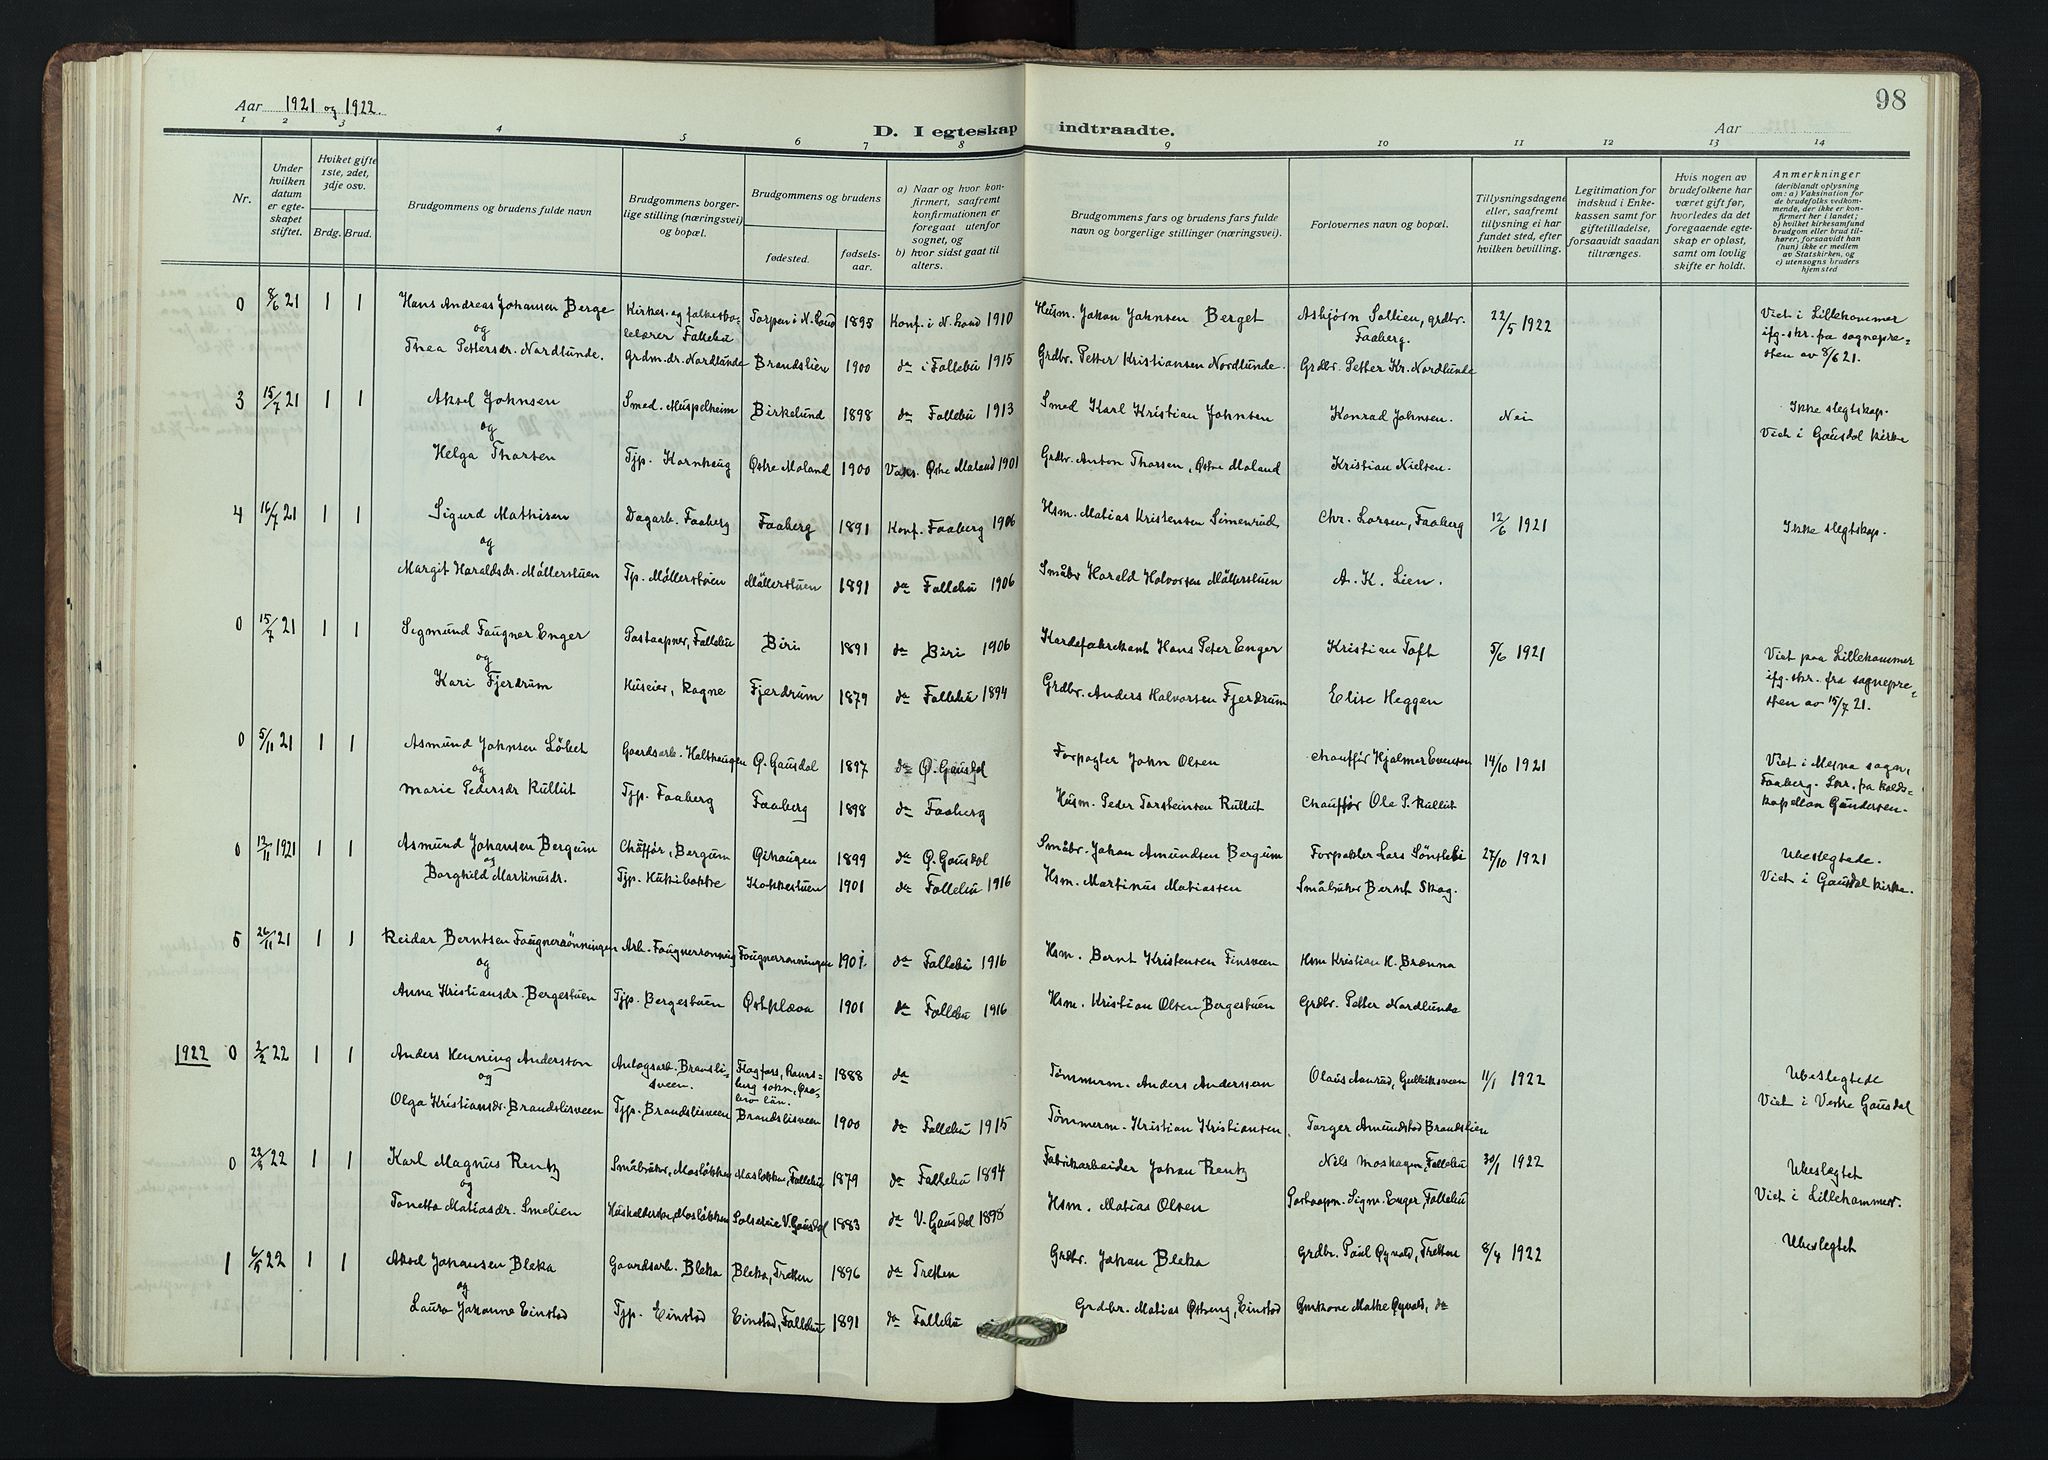 98
Aar 1921 og 1922.
D. I egteskap indtraadte.
Aar
1 2 3 4 5 6 7 8 9 10 11 12 13 14
Nr.
Under hvilken datum er egteskapet stiftet.
Hviket gifte 1ste, 2det, 3dje osv.
Brdg. Brud.
Brudgommens og brudens fulde navn
Brudgommens borgerlige stilling (næringsvei) og bopæl.
Brudgommens og brudens
fødested.
fødselsaar.
a) Naar og hvor konfirmert, saafremt konfirmationen er foregaat utenfor sognet, og
b) hvor sidst gaat til alters.
Brudgommens fars og brudens fars fulde navn og borgerlige stillinger (næringsvei).
Forlovernes navn og bopæl.
Tillysningsdagene eller, saafremt tillysning ei har fundet sted, efter hvilken bevilling.
Legitimation for indskud i Enkekassen samt for giftetilladelse, forsaavidt saadan tiltrænges.
Hvis nogen av brudefolkene har været gift før, hvorledes da det foregaaende egteskap er opløst, samt om lovlig skifte er holdt.
Anmerkninger
(deriblandt oplysning om: a) Vaksination for de brudefolks vedkommende, der ikke er konfirmert her i landet; b) hvilket kirkesamfund brudgom eller brud tilhører, forsaavidt han (hun) ikke er medlem av Statskirken, og c) utensogns bruders hjemsted
0 8/6 21 1 1 Hans Andreas Johansen Berge Kirkes. og folkeskolelærer Follebu Torpen i N. Land 1895 Konf. i N. Land 1910 Husm. Johan Johnsen Berget Asbjørn Sollien, grdbr. Faaberg. 22/5 1922 Viet i Lillehammer ifg. skr. fra sognepresten av 8/6 21.
og
Thea Pettersdr. Nordlunde. Grdm. dr. Nordlunde Brandslien 1900 do i Follebu 1915 Grdbr. Petter Kristiansen Nordlunde. Grdbr. Petter Kr. Nordlunde
3 15/7 21 1 1 Aksel Johnsen Smed. Muspelheim Birkelund 1898 do Follebu 1913 Smed Karl Kristian Johnsen Konrad Johnsen. Nei Ikke slegtskap.
og Viet i Gausdal kirke
Helga Thorsen Tjp. Kornhaug Østre Moland 1900 Vaks. Østre Moland 1901 Grdbr. Anton Thorsen, Østre Moland Kristian Nielsen.
4 16/7 21 1 1 Sigurd Mathisen Dagarb. Faaberg Faaberg 1891 Konf. Faaberg 1906 Hsm. Matias Kristensen Simenrud Chr. Larsen, Faaberg 12/6 1921 Ikke slegtskap.
og
Margit Haraldsdr. Møllerstuen Tjp. Møllerstuen Møllerstuen 1891 do Follebu 1906 Småbr Harald Halvorsen Møllerstuen A. K. Lien.
0 15/7 21 1 1 Sigmund Faugner Enger Postaapner, Follebu Biri 1891 do Biri 1906 Kardefabrikant Hans Peter Enger Kristian Toft 5/6 1921 Viet paa Lillehammer ifg. skr. fra sognepresten av 15/7 21.
og
Kari Fjerdrum Huseier, Ragne Fjerdrum 1879 do Follebu 1894 Grdbr. Anders Halvorsen Fjerdrum Elise Heggen
0 5/11 21 1 1 Asmund Johnsen Løbet Gaardsarb. Holthaugen Ø. Gausdal 1897 do Ø. Gausdal Forpagter John Olsen Chauffør Hjalmar Evensen 14/10 1921 Viet i Mesna sogn, Faaberg.
og
Marie Pedersdr Rullut Tjp. Faaberg Faaberg 1898 do Faaberg Husm. Peder Torsteinsen Rullut Chauffør Ole P. Rullut kapellan Gundersen.
0 12/11 1921 1 1 Asmund Johansen Bergum Chåffør, Bergum Øihaugen 1899 do Ø. Gausdal Småbr. Johan Amundsen Bergum Forpakter Lars Sønsteli 27/10 1921 Ubeslegtede.
og
Borghild Martinusdr. Tjp. Kukibakke Kokkestuen 1901 do Follebu 1916 Hsm. Martinus Matiassen Småbruker Bernt Skog. Viet i Gausdal kirke.
5 26/11 21 1 1 Reidar Berntsen Faugnerrønningen Arb. Faugnerrønning Faugnerrønningen 1901 do Follebu 1916 Hsm. Bernt Kristensen Finsveen Hsm Kristian H. Brænna
og
Anna Kristiansdr. Bergestuen Tjp. Bergestuen Østplæva 1901 do Follebu 1916 Hsm. Kristian Olsen Bergestuen Grdbr. Petter Nordlunde
1922 0 2/2 22 1 1 Anders Henning Andersson Anlegsarb. Branslisveen. 1888 do Tømmerm. Anders Anderssen Olaus Aanrud, Gulleiksveen 11/1 1922 Ubeslegtede
og Viet i Vestre Gausdal
Olga Kristiansdr. Brandslisveen Tjp. Brandslisveen Brandslisveen 1900 do Follebu 1915 Tømmerm. Kristian Kristiansen. Torger Amundstad Brandslien
0 1 1 Karl Magnus Rentz Småbruker, Mosløkken Mosløkken, Follebu 1879 do Follebu 1894 Fabrikarbeider Johan Rentz Nils Moshagen, Follebu 30/1 1922 Ubeslegtet
og Viet i Lillehammer.
Tonetta Matiasdr. Smelien Husholderske, Mosløkken V. Gausdal 1883 do V. Gausdal 1898 Hsm. Matias Olsen Postaapn. Sigm. Enger, Follebu
1 1 1 Aksel Johansen Bleka Gaardsarb. Bleka Bleka, Tretten 1896 do Tretten Grdbr. Johan Bleka Grdbr. Paul Øyvold, Tretten 8/4 1922 Ubeslegtet
og
Laura Johanne Einstad Tjp. Einstad Einstad, Follebu 1891 do Follebu Grdbr. Matias Østeng, Einstad Gmkone Mathe Øyvold, do